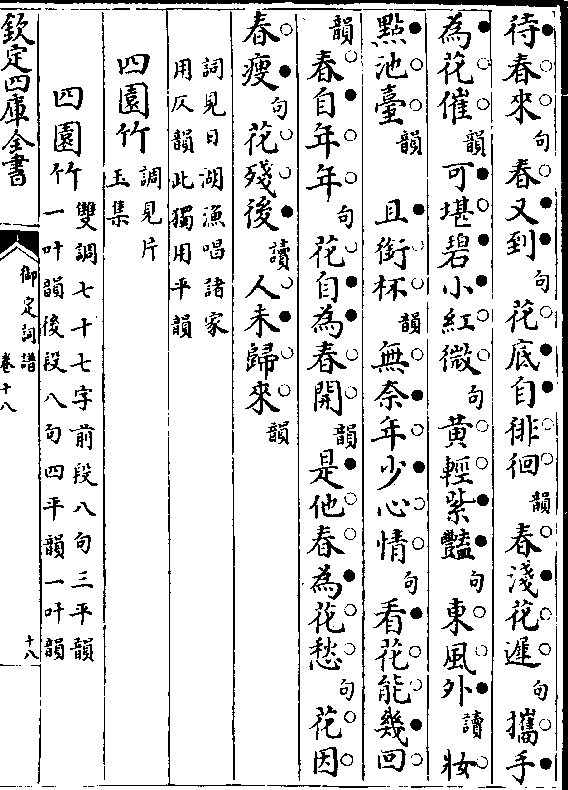 待春來句春又到句花底自徘徊韻春淺花遲句攜手
為花催韻可堪碧小紅微句黃輕紫豔句東風外讀妝
點池臺韻且銜杯韻無奈年少心情句看花能幾回
韻春自年年句花自為春開韻是他春為花愁句花因
春瘦句花殘後讀人未歸來韻
詞見日湖漁唱諸家
用仄韻此獨用平韻
四園竹調見片
玉集
四園竹雙調七十七字前段八句三平韻
一叶韻後段八句四平韻一叶韻
欽定四庫全書
御定詞譜
卷十八
十八